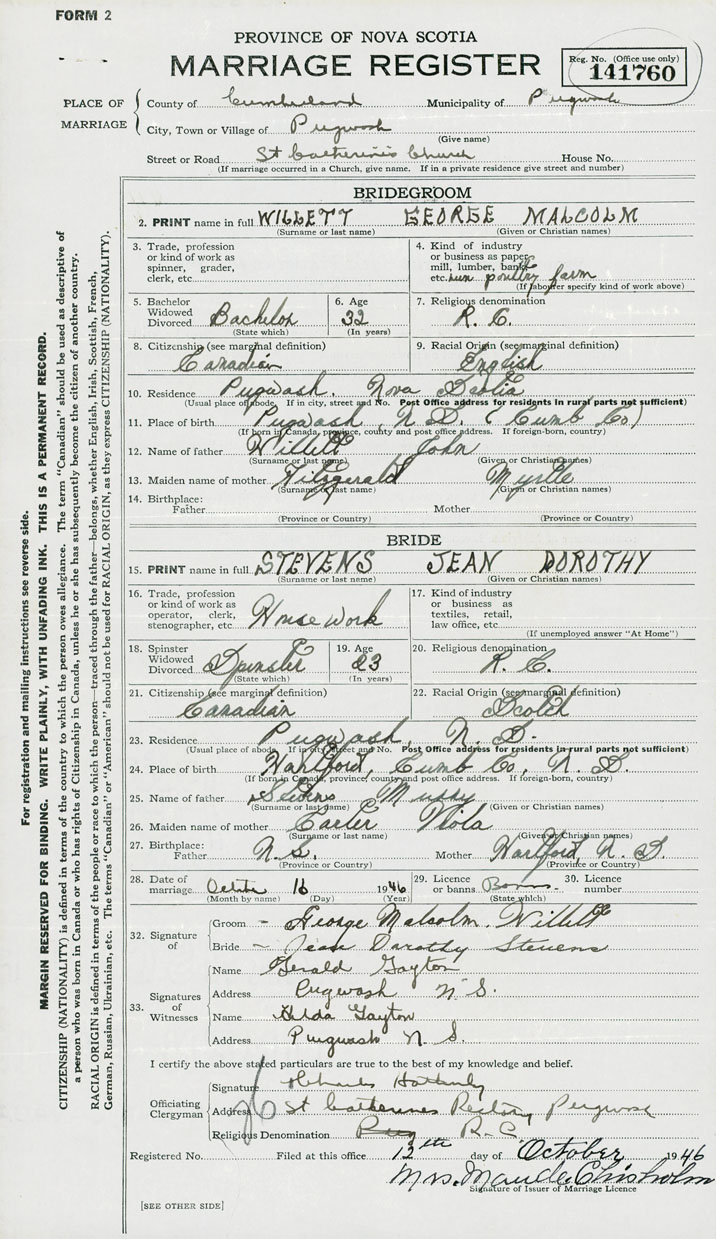 FORM 2
PROVINCE OF NOVA SCOTIA
MARRIAGE REGISTER
Reg. No. (Office use only)
141760
PLACE OF MARRIAGE
County of Cumberland Municipality of Pugwash
City, Town or Village of Pugwash
(Give name)
Street or Road St Catherine's Church House No.
(If marriage occurred in a Church, give name. If in a private residence give street and number)
BRIDEGROOM
2. PRINT name in full WILLETT GEORGE MALCOLM
(Surname or last name) (Given or Christian names)
3. Trade, profession or kind of work as spinner, grader, clerk, etc.
4. Kind of industry or business as paper mill, lumber, bank, etc. run poultry farm
(If labourer specify kind of work above)
5. Bachelor Widowed Divorced Bachelor
(State which)
6. Age 32
(In years)
7. Religious denomination
R. C.
8. Citizenship (see marginal definition)
Canadian
9. Racial Origin (see marginal definition)
English
10. Residence Pugwash, Nova Scotia
(Usual place of abode. If in city, street and No. Post Office address for residents in rural parts not sufficient)
11. Place of birth Pugwash, N.S. (Cumb Co)
(If born in Canada, province, county and post office address. If foreign-born, country)
12. Name of father Willett John
(Surname or last name) (Given or Christian names)
13. Maiden name of mother Fitzgerald Myrtle
(Surname or last name) (Given or Christian names)
14. Birthplace:
Father Mother
(Province or Country) (Province or Country)
BRIDE
15. PRINT name in full STEVENS JEAN DOROTHY
(Surname or last name) (Given or Christian names)
16. Trade, profession or kind of work as operator, clerk, stenographer, etc. House work
17. Kind of industry or business as textiles, retail, law office, etc.
(If unemployed answer "At Home")
18. Spinster Widowed Divorced Spinster
(State which)
19. Age 23
(In years)
20. Religious denomination
R. C.
21. Citizenship (see marginal definition)
Canadian
22. Racial Origin (see marginal definition)
Scotch
23. Residence Pugwash, N. S.
(Usual place of abode. If in city street and No. Post Office address for residents in rural parts not sufficient)
24. Place of birth Hartford, Cumb Co, N. S.
(If born in Canada, province, county and post office address. If foreign-born, country)
25. Name of father Stevens
(Surname or last name) (Given or Christian names)
26. Maiden name of mother Carter Viola
(Surname or last name) (Given or Christian names)
27. Birthplace:
Father N. S. Mother Hartford, N. S.
(Province or Country) (Province or Country)
28. Date of marriage 16 1946
(Month by name) (Day) (Year)
29. Licence or banns Banns
(State which)
30. Licence number
32. Signature of
Groom – George Malcolm Willett
Bride – Jean Dorothy Stevens
33. Signatures of Witnesses
Name Gerald Gayton
Address Pugwash N. S.
Name Hilda Gayton
Address Pugwash N. S.
I certify the above stated particulars are true to the best of my knowledge and belief.
Officiating Clergyman
Signature Charles
Address St Catherines Rectory Pugwash
Religious Denomination R-C
Registered No. Filed at this office 12th day of October 1946
Mrs. Maude Chisholm
Signature of Issuer of Marriage Licence
[SEE OTHER SIDE]
For registration and mailing instructions see reverse side.
MARGIN RESERVED FOR BINDING. WRITE PLAINLY, WITH UNFADING INK. THIS IS A PERMANENT RECORD.
CITIZENSHIP (NATIONALITY) is defined in terms of the country to which the person owes allegiance. The term "Canadian" should be used as descriptive of
a person who was born in Canada or who has rights of Citizenship in Canada, unless he or she has subsequently become the citizen of another country.
RACIAL ORIGIN is defined in terms of the people or race to which the person—traced through the father—belongs, whether English, Irish, Scottish, French,
German, Russian, Ukrainian, etc. The terms "Canadian" or "American" should not be used for RACIAL ORIGIN, as they express CITIZENSHIP (NATIONALITY).